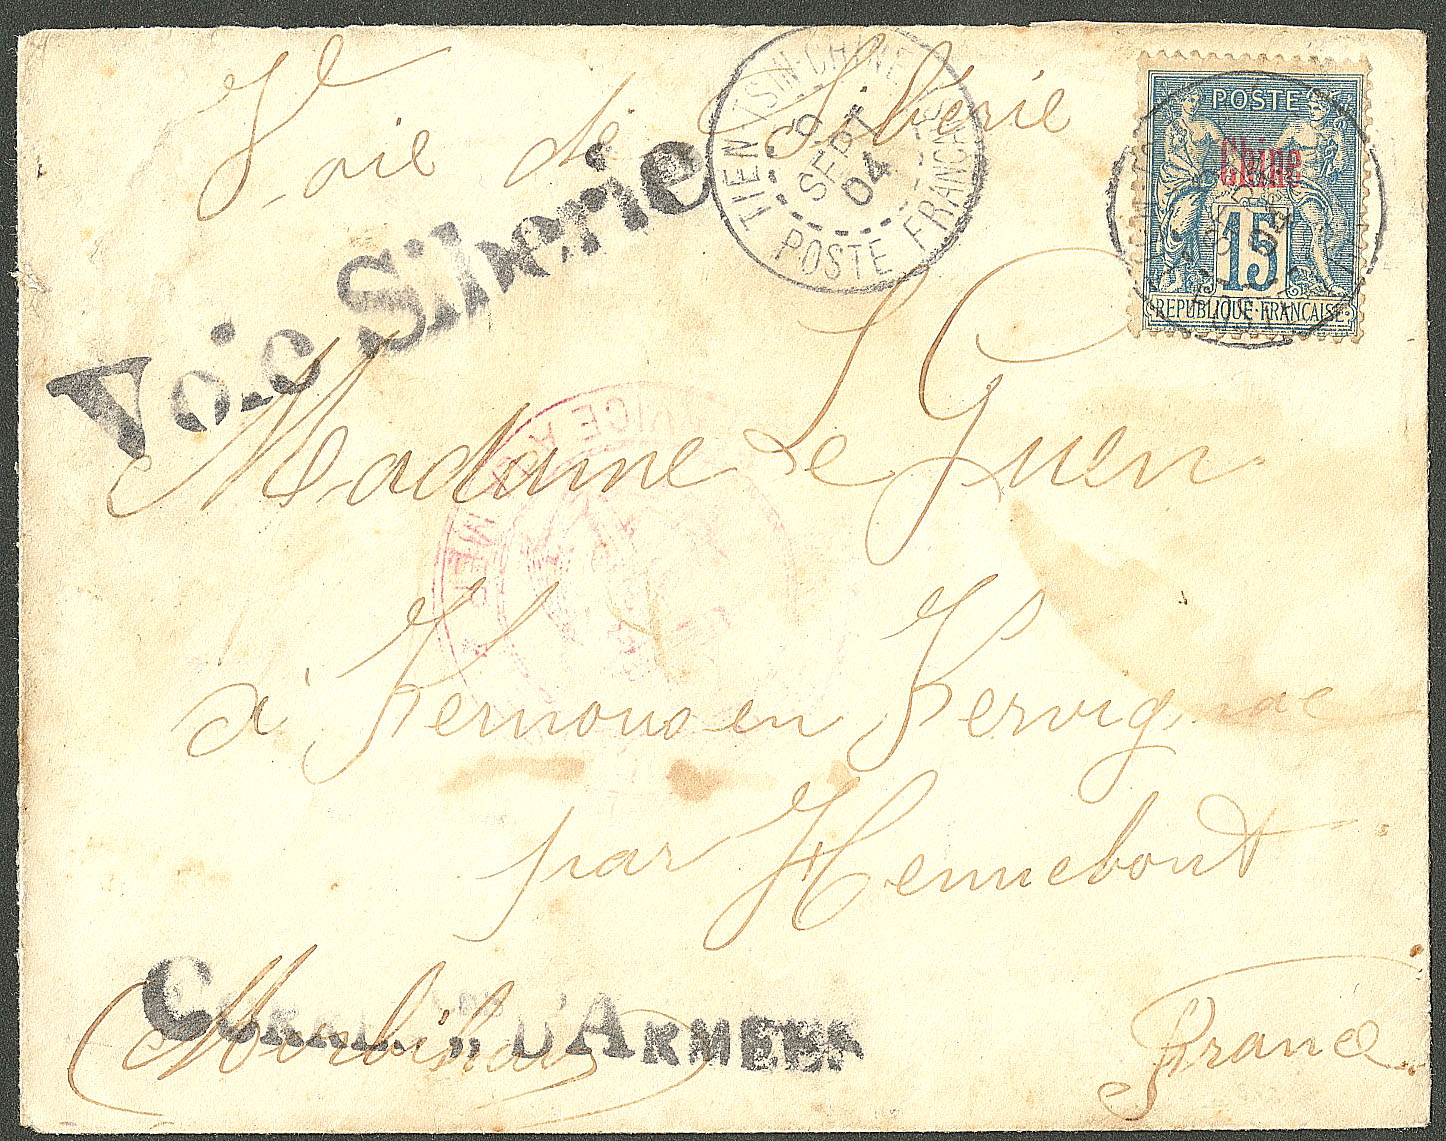 Voie de Sibérie
TIEN-TSIN-CHINE
9
SEPT
04
POSTE FRANÇAISE
POSTE
Chine
15
REPUBLIQUE·FRANCAISE
Voie Siberie
Madame Le Guen
à Kernours en Kervignac
par Hennebont
CORR. D'ARMEES
(Morbihan)
France